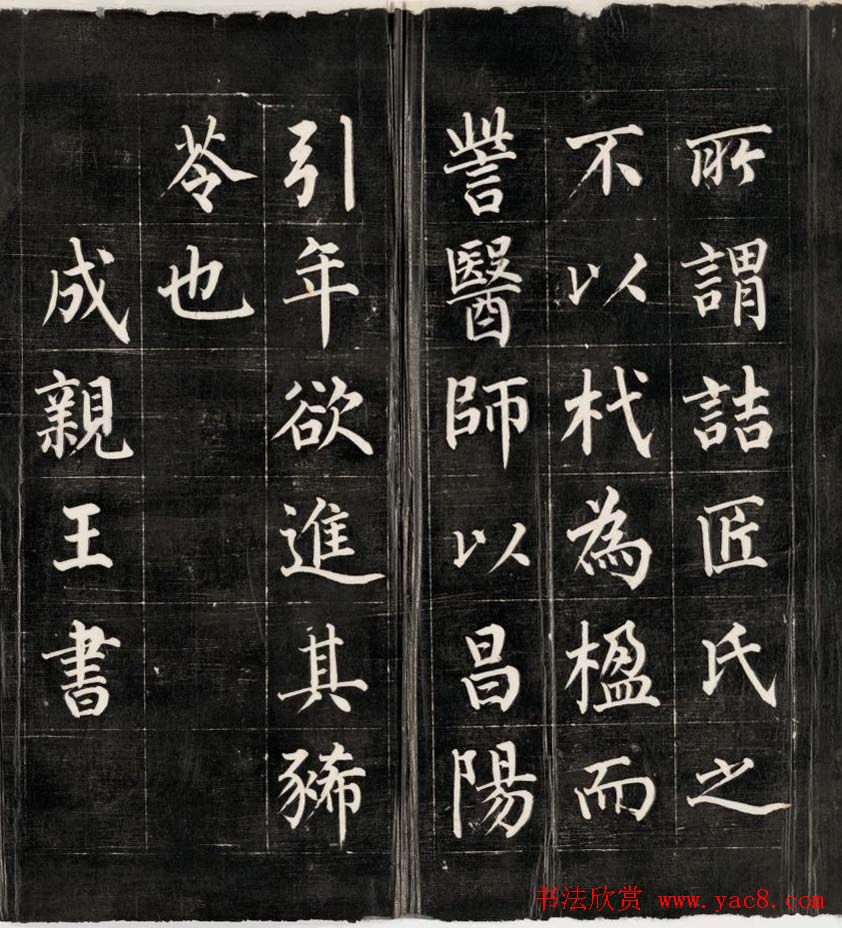 所謂詰匠氏之
不以杙為楹而
訾醫師以昌陽
引年欲進其豨
苓也
成親王書
书法欣赏 www.yac8.com